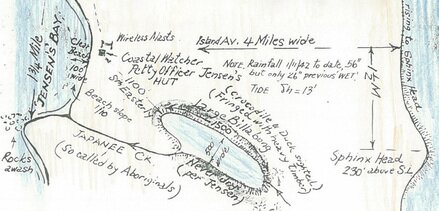 1¾ Mile
JENSEN'S BAY
Clear
Beach
100'
wide
Wireless Masts
Coastal Watcher
Petty Officer Jensen's
HUT
Island Av. 4 Miles wide
NOTE. Rainfall 1/11/42 to date, 56"
but only 26" previous 'WET'.
TIDE
= 13'
rising to Sphinx Head
Beach slope
1100'
JAPANEE CK.
(So called by Aboriginals)
Rocks
awash
Large Billabong
(Fringed with heavy timber)
(Crocodile & Duck sighted)
1500'
Never dry
(per Jensen)
Sphinx Head
230' above S.L